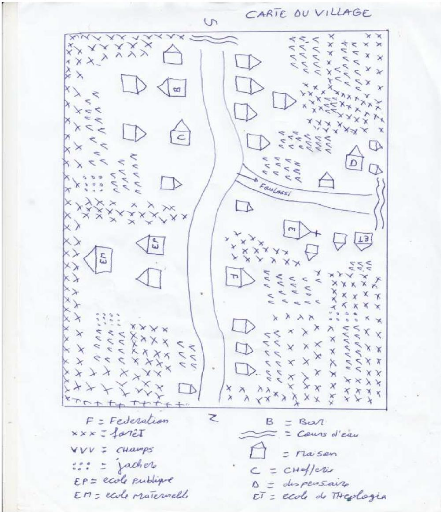 S
CARTE DU VILLAGE
B
C
D
Foulassi
E
ET
EP
EM
F
N
F = Federation
xxx = forêt
VVV = champs
::: = jacher
EP = ecole publique
EM = ecole maternelle
B = Bar
= Cours d'eau
= Maison
C = Chefferie
D = dispensaire
ET = ecole de Theologia